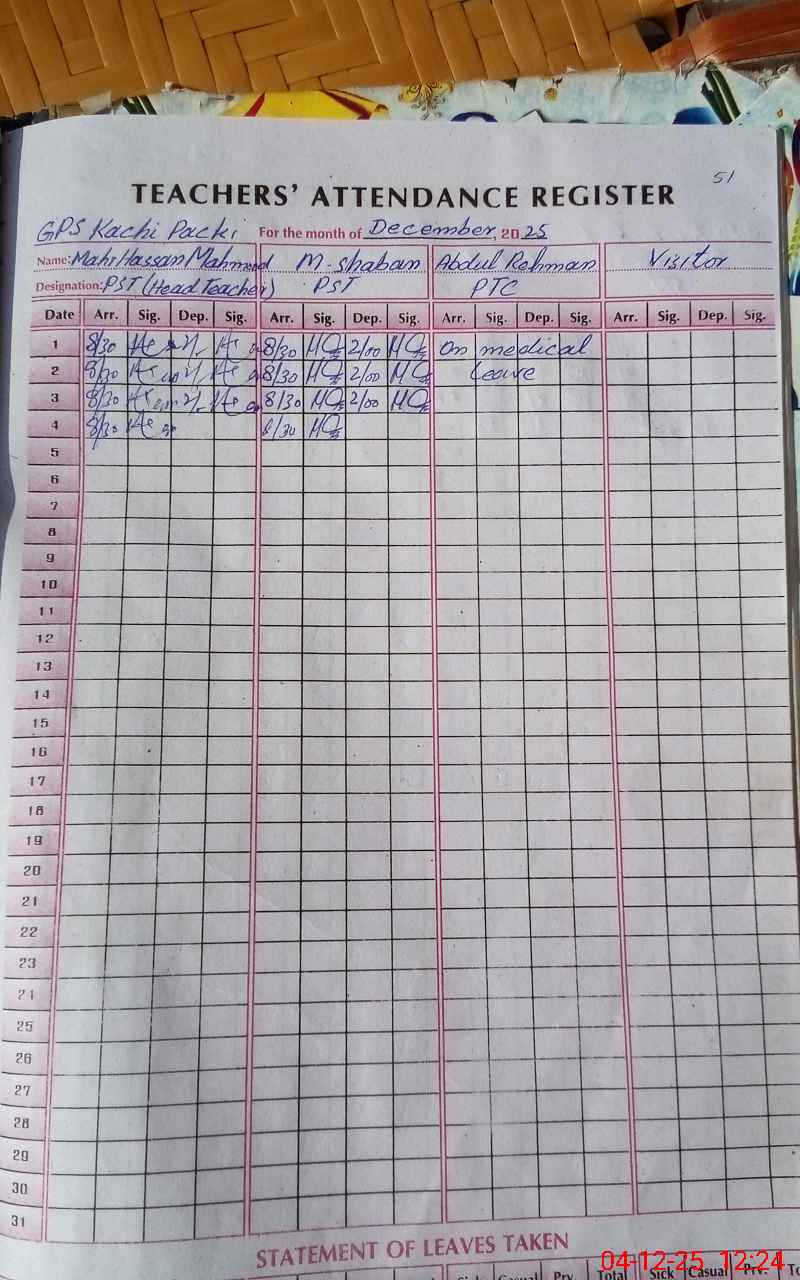 51
TEACHERS' ATTENDANCE REGISTER
GPS Kachi Packi For the month of December, 2025
Name: Mahr Hassan Mahmood M. Shaban Abdul Rehman Visitor
Designation: PST (Head Teacher) PST PTC
Date Arr. Sig. Dep. Sig. Arr. Sig. Dep. Sig. Arr. Sig. Dep. Sig. Arr. Sig. Dep. Sig.
1 8/30 8/30 2/00 On medical
2 8/30 8/30 2/00 Leave
3 8/30 8/30 2/00
4 8/30 8/30
5
6
7
8
9
10
11
12
13
14
15
16
17
18
19
20
21
22
23
24
25
26
27
28
29
30
31
STATEMENT OF LEAVES TAKEN
Sick Casual Prv. Total Sick Casual Prv.
04-12-25 12:24